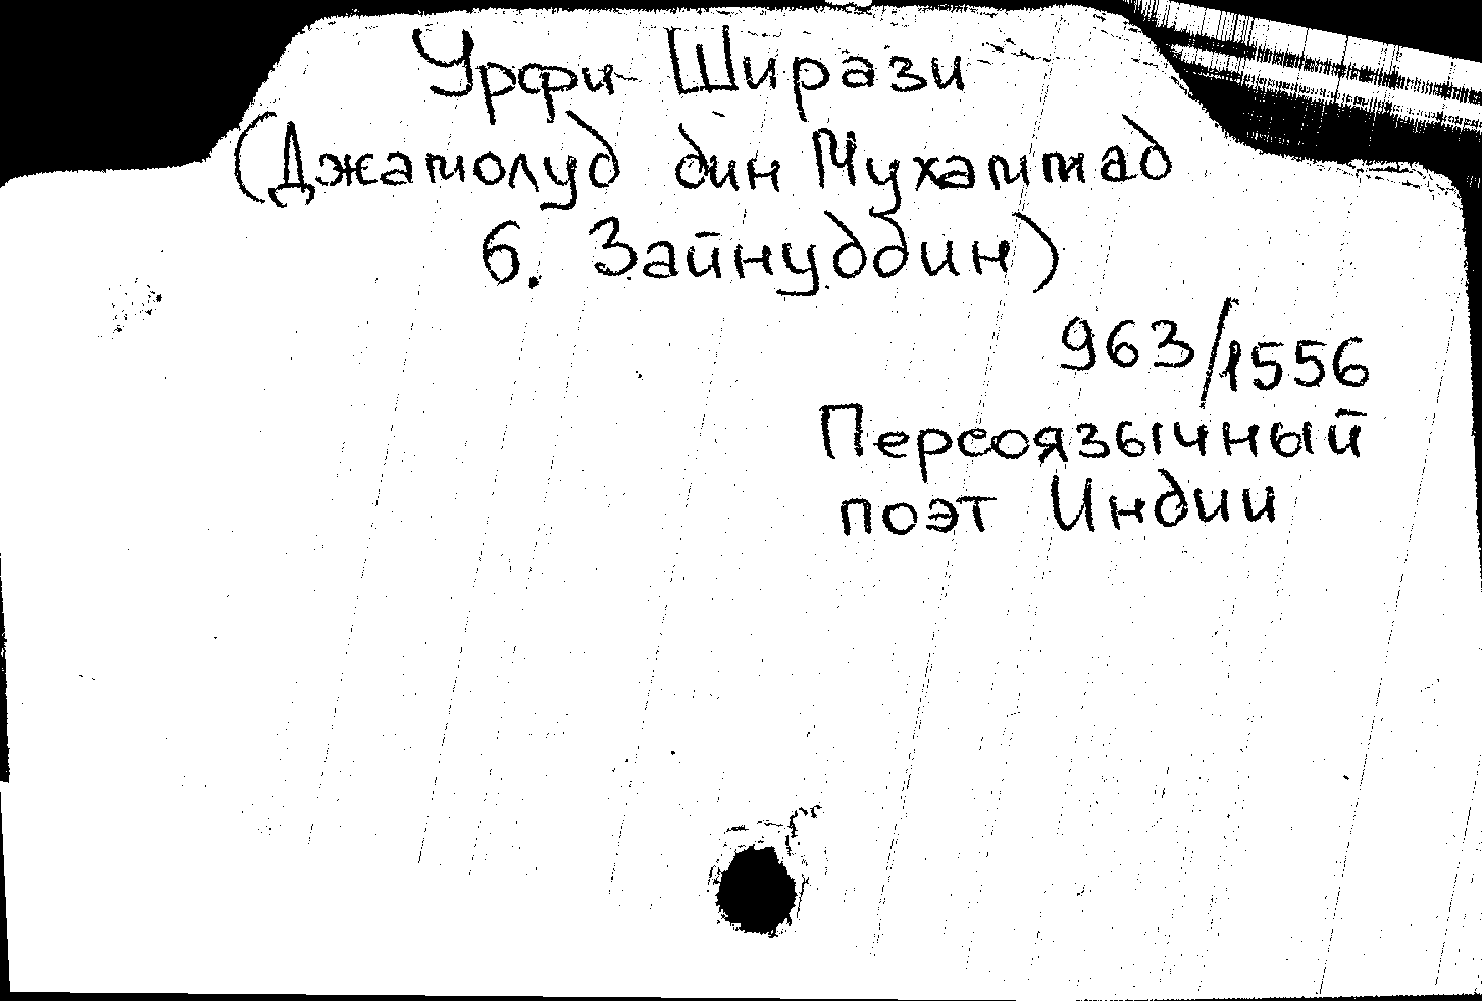 Урфи Ширази
(Джамолуд дин Мухаммад
б. Зайнуддин)
963/1556
Персоязычный
поэт Индии